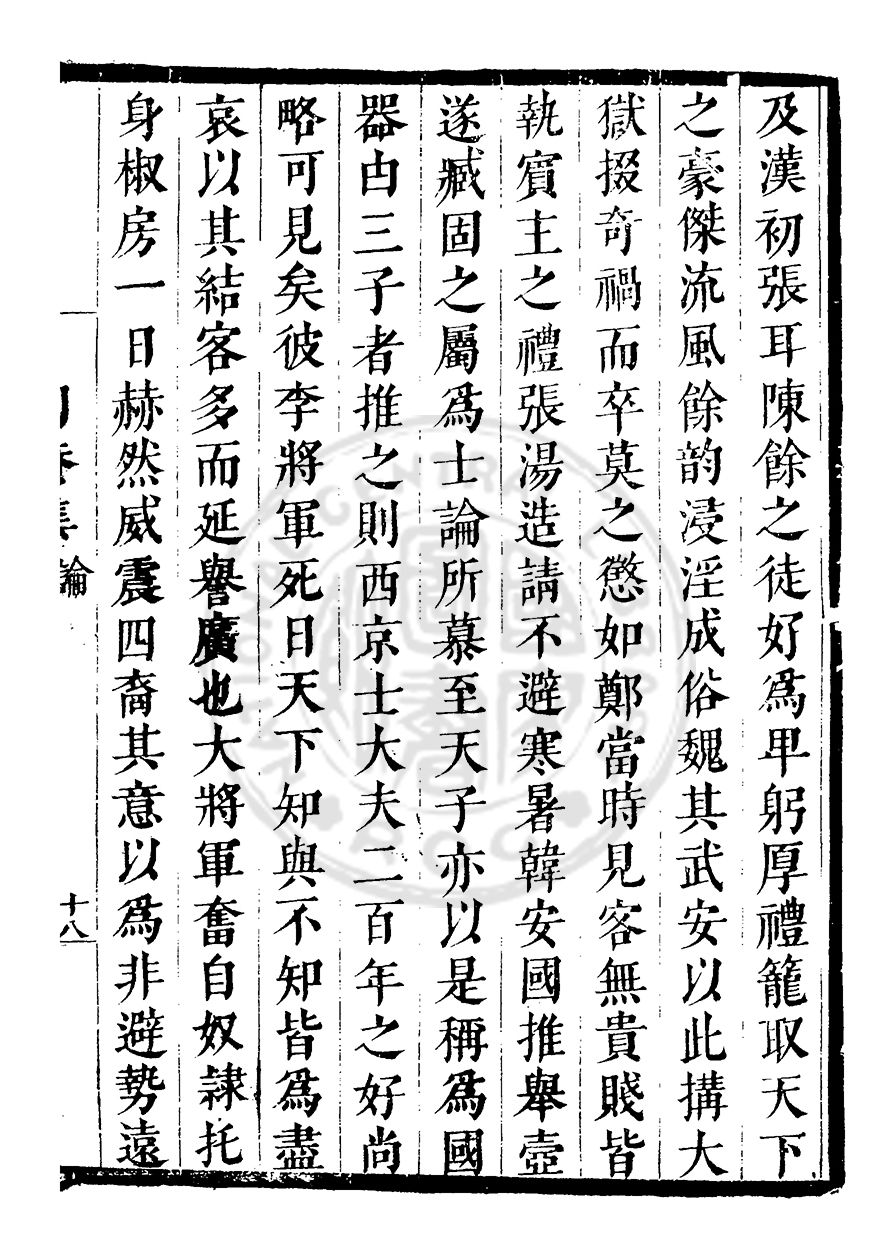 及漢初張耳陳餘之徒好爲卑躬厚禮籠取天下
之豪傑流風餘韵浸淫成俗魏其武安以此搆大
獄掇奇禍而卒莫之懲如鄭當時見客無貴賤皆
執賓主之禮張湯造請不避寒暑韓安國推舉壺
遂臧固之屬爲士論所慕至天子亦以是稱爲國
器由三子者推之則西京士大夫二百年之好尚
略可見矣彼李將軍死日天下知與不知皆爲盡
哀以其結客多而延譽廣也大將軍奮自奴隷托
身椒房一日赫然威震四裔其意以爲非避勢遠
集論
十八